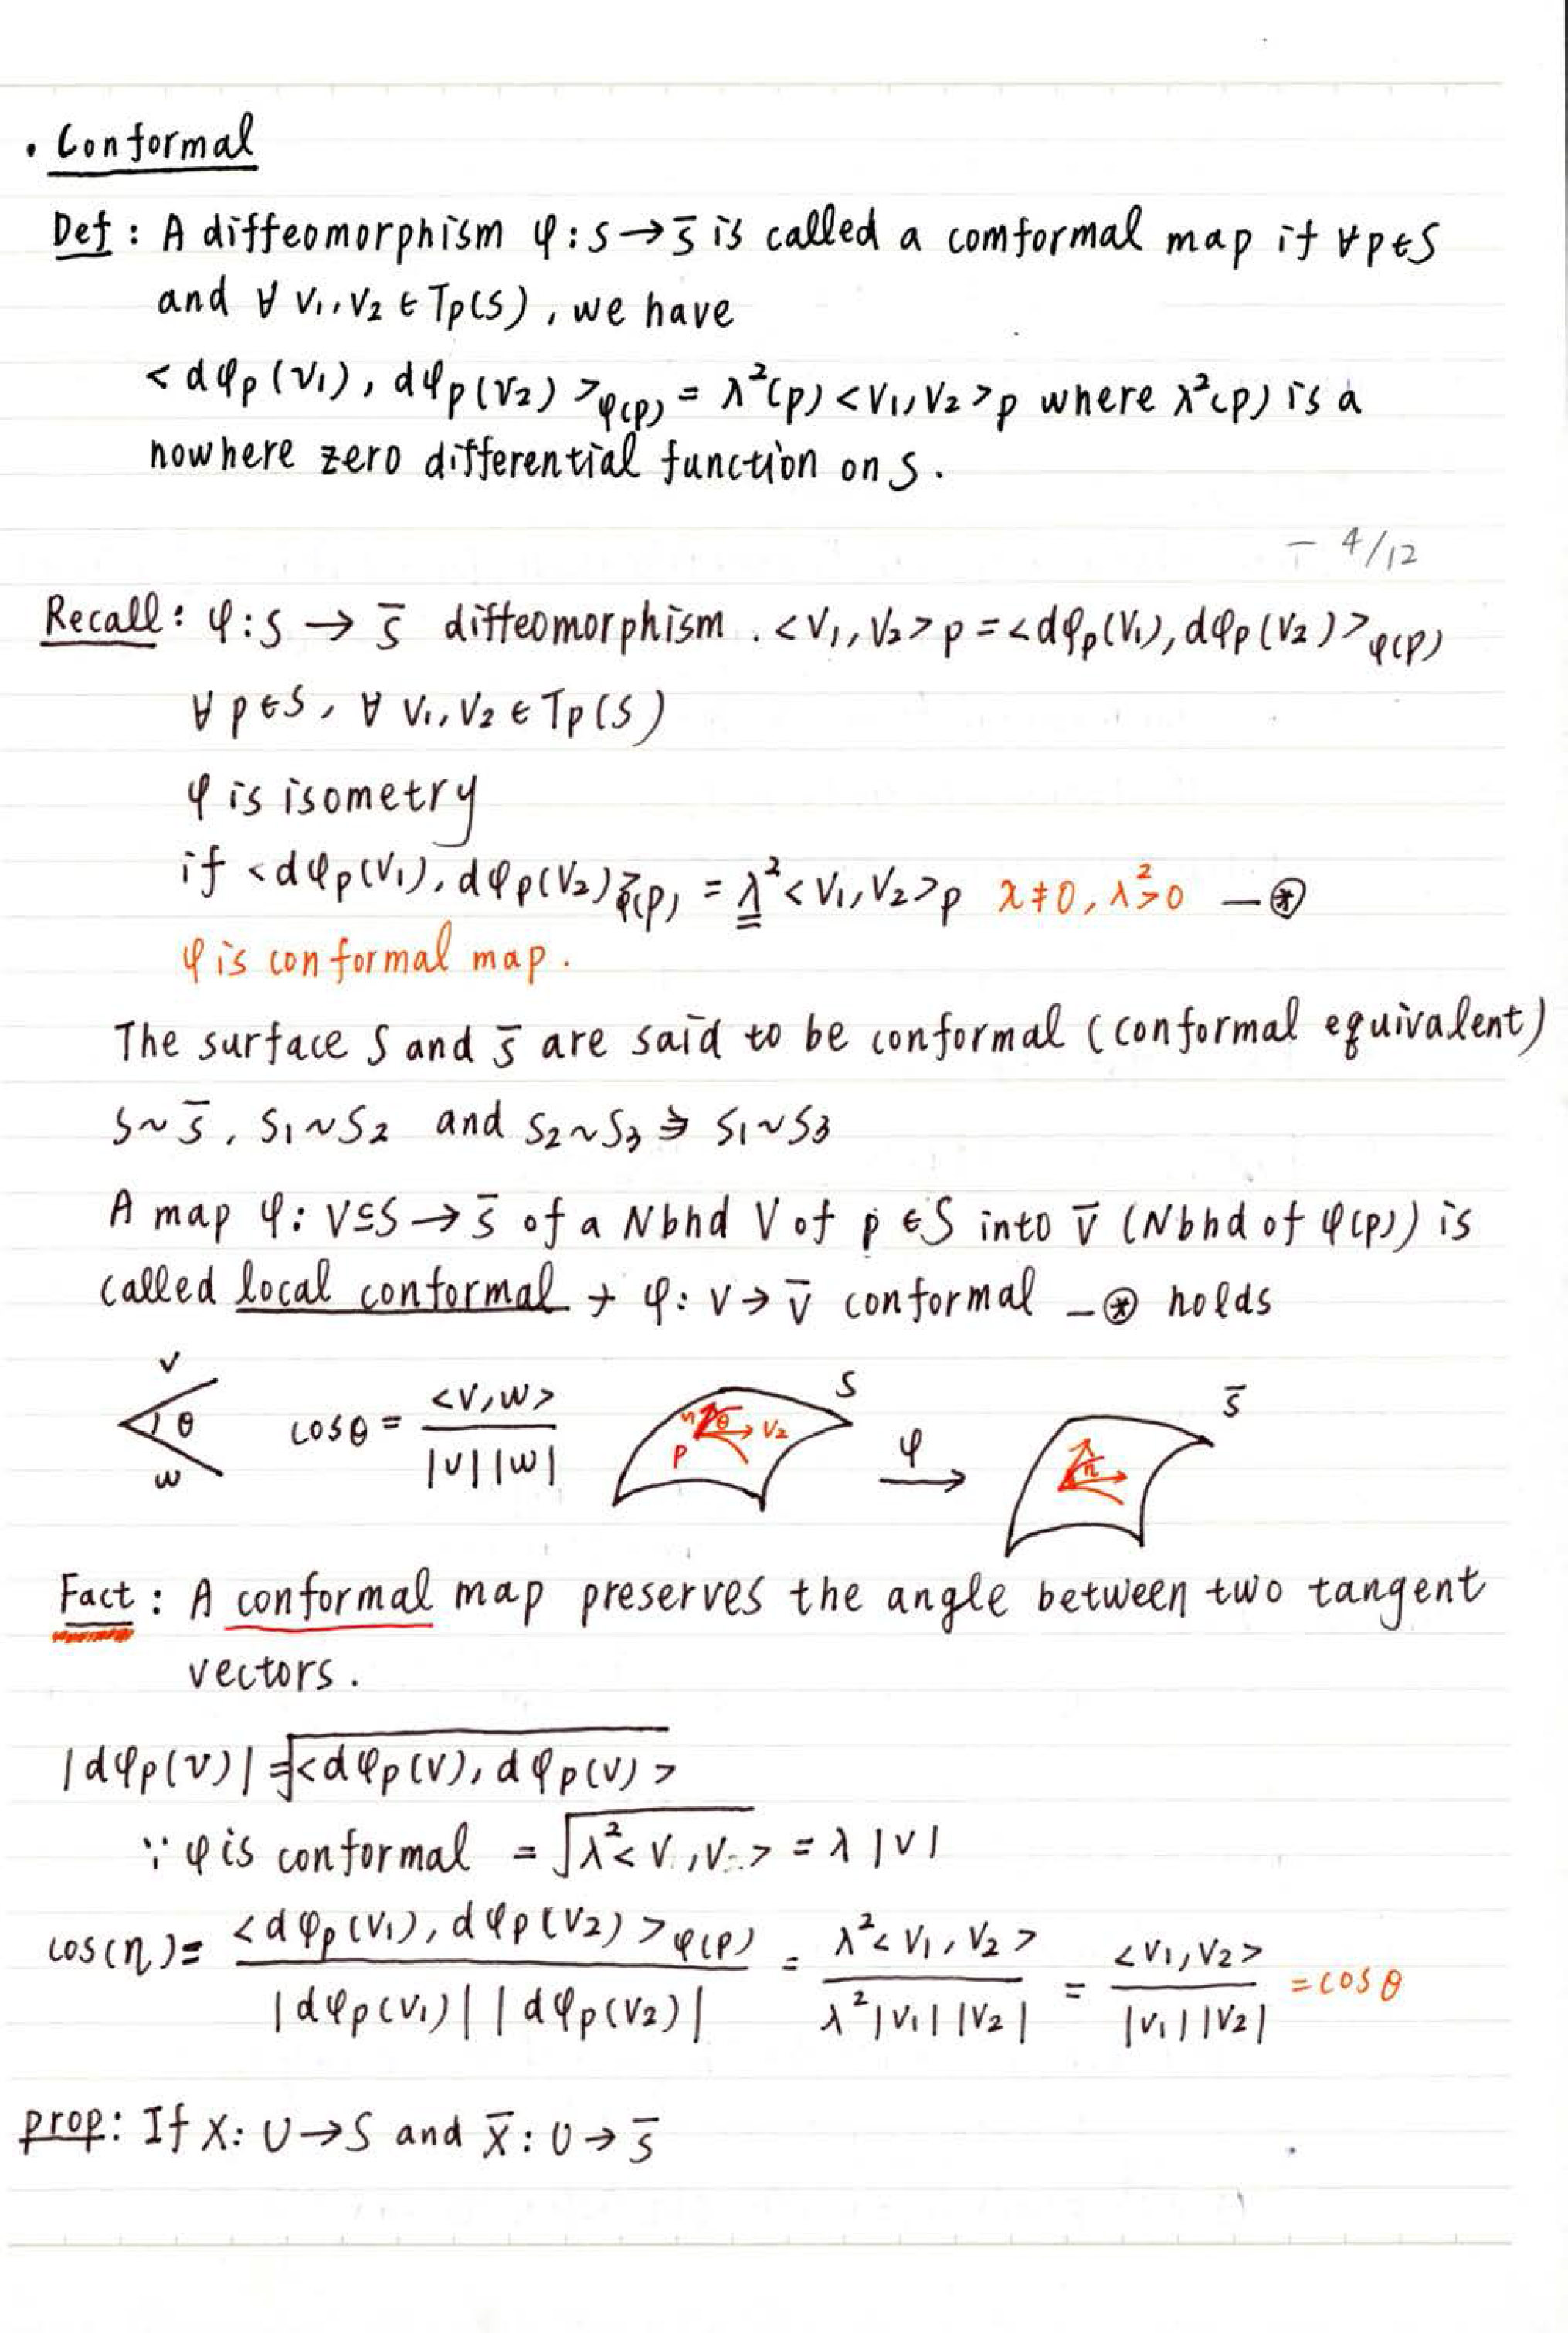 • Conformal
Def : A diffeomorphism φ : S → S̄ is called a comformal map if ∀p∈S
and ∀ v₁, v₂ ∈ Tp(S), we have
<dφp(v₁), dφp(v₂)>φ(p) = λ²(p) <v₁, v₂>p where λ²(p) is a
nowhere zero differential function on S.
- 4/12
Recall : φ : S → S̄ diffeomorphism . <v₁, v₂>p = <dφp(v₁), dφp(v₂)>φ(p)
∀ p∈S, ∀ v₁, v₂ ∈ Tp(S)
φ is isometry
if <dφp(v₁), dφp(v₂)>φ(p) = λ² <v₁, v₂>p λ≠0, λ²>0 — ⊛
φ is conformal map.
The surface S and S̄ are said to be conformal (conformal equivalent)
S ~ S̄, S₁ ~ S₂ and S₂ ~ S₃ ⇒ S₁ ~ S₃
A map φ : V ⊆ S → S̄ of a Nbhd V of p ∈ S into V̄ (Nbhd of φ(p)) is
called local conformal φ : V → V̄ conformal — ⊛ holds
v θ w cosθ = <v, w> / |v| |w| θ v₂ p S φ → η S̄
Fact : A conformal map preserves the angle between two tangent
vectors.
|dφp(v)| = √<dφp(v), dφp(v)>
∵ φ is conformal = √λ²<v, v> = λ |v|
cos(η) = <dφp(v₁), dφp(v₂)>φ(p) / |dφp(v₁)| |dφp(v₂)| = λ²<v₁, v₂> / λ²|v₁| |v₂| = <v₁, v₂> / |v₁| |v₂| = cos θ
prop : If X : U → S and X̄ : U → S̄